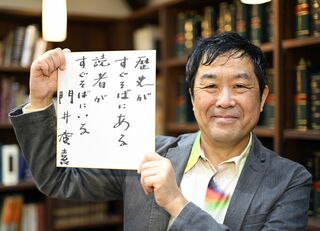 歴史が
すぐそばにある
読者が
すぐそばにいる
門井慶喜